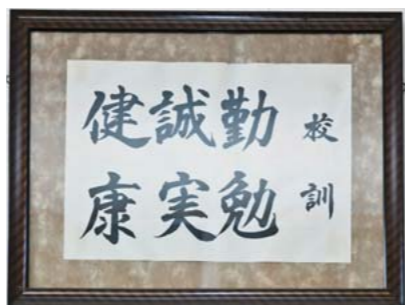 校訓
勤勉
誠実
健康